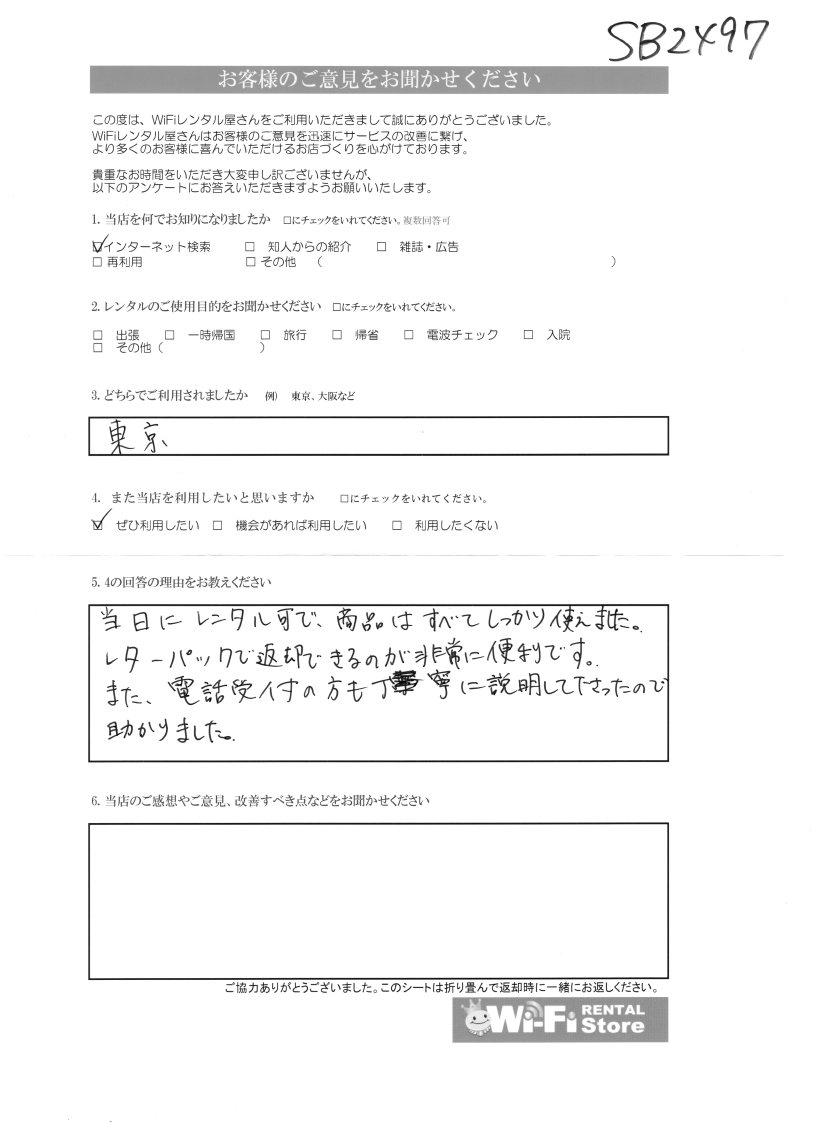 SB2X97
お客様のご意見をお聞かせください
この度は、WiFiレンタル屋さんをご利用いただきまして誠にありがとうございました。
WiFiレンタル屋さんはお客様のご意見を迅速にサービスの改善に繋げ、
より多くのお客様に喜んでいただけるお店づくりを心がけております。
貴重なお時間をいただき大変申し訳ございませんが、
以下のアンケートにお答えいただきますようお願いいたします。
1. 当店を何でお知りになりましたか □にチェックをいれてください。複数回答可
☑インターネット検索 □ 知人からの紹介 □ 雑誌・広告
□ 再利用 □ その他 （ ）
2. レンタルのご使用目的をお聞かせください □にチェックをいれてください。
□ 出張 □ 一時帰国 □ 旅行 □ 帰省 □ 電波チェック □ 入院
□ その他（ ）
3. どちらでご利用されましたか 例） 東京、大阪など
東京
4. また当店を利用したいと思いますか □にチェックをいれてください。
☑ ぜひ利用したい □ 機会があれば利用したい □ 利用したくない
5. 4の回答の理由をお教えください
当日にレンタル可で、商品はすべてしっかり使えました。
レターパックで返却できるのが非常に便利です。
また、電話受付の方も丁寧に説明して下さったので
助かりました。
6. 当店のご感想やご意見、改善すべき点などをお聞かせください
ご協力ありがとうございました。このシートは折り畳んで返却時に一緒にお返しください。
Wi-Fi RENTAL Store